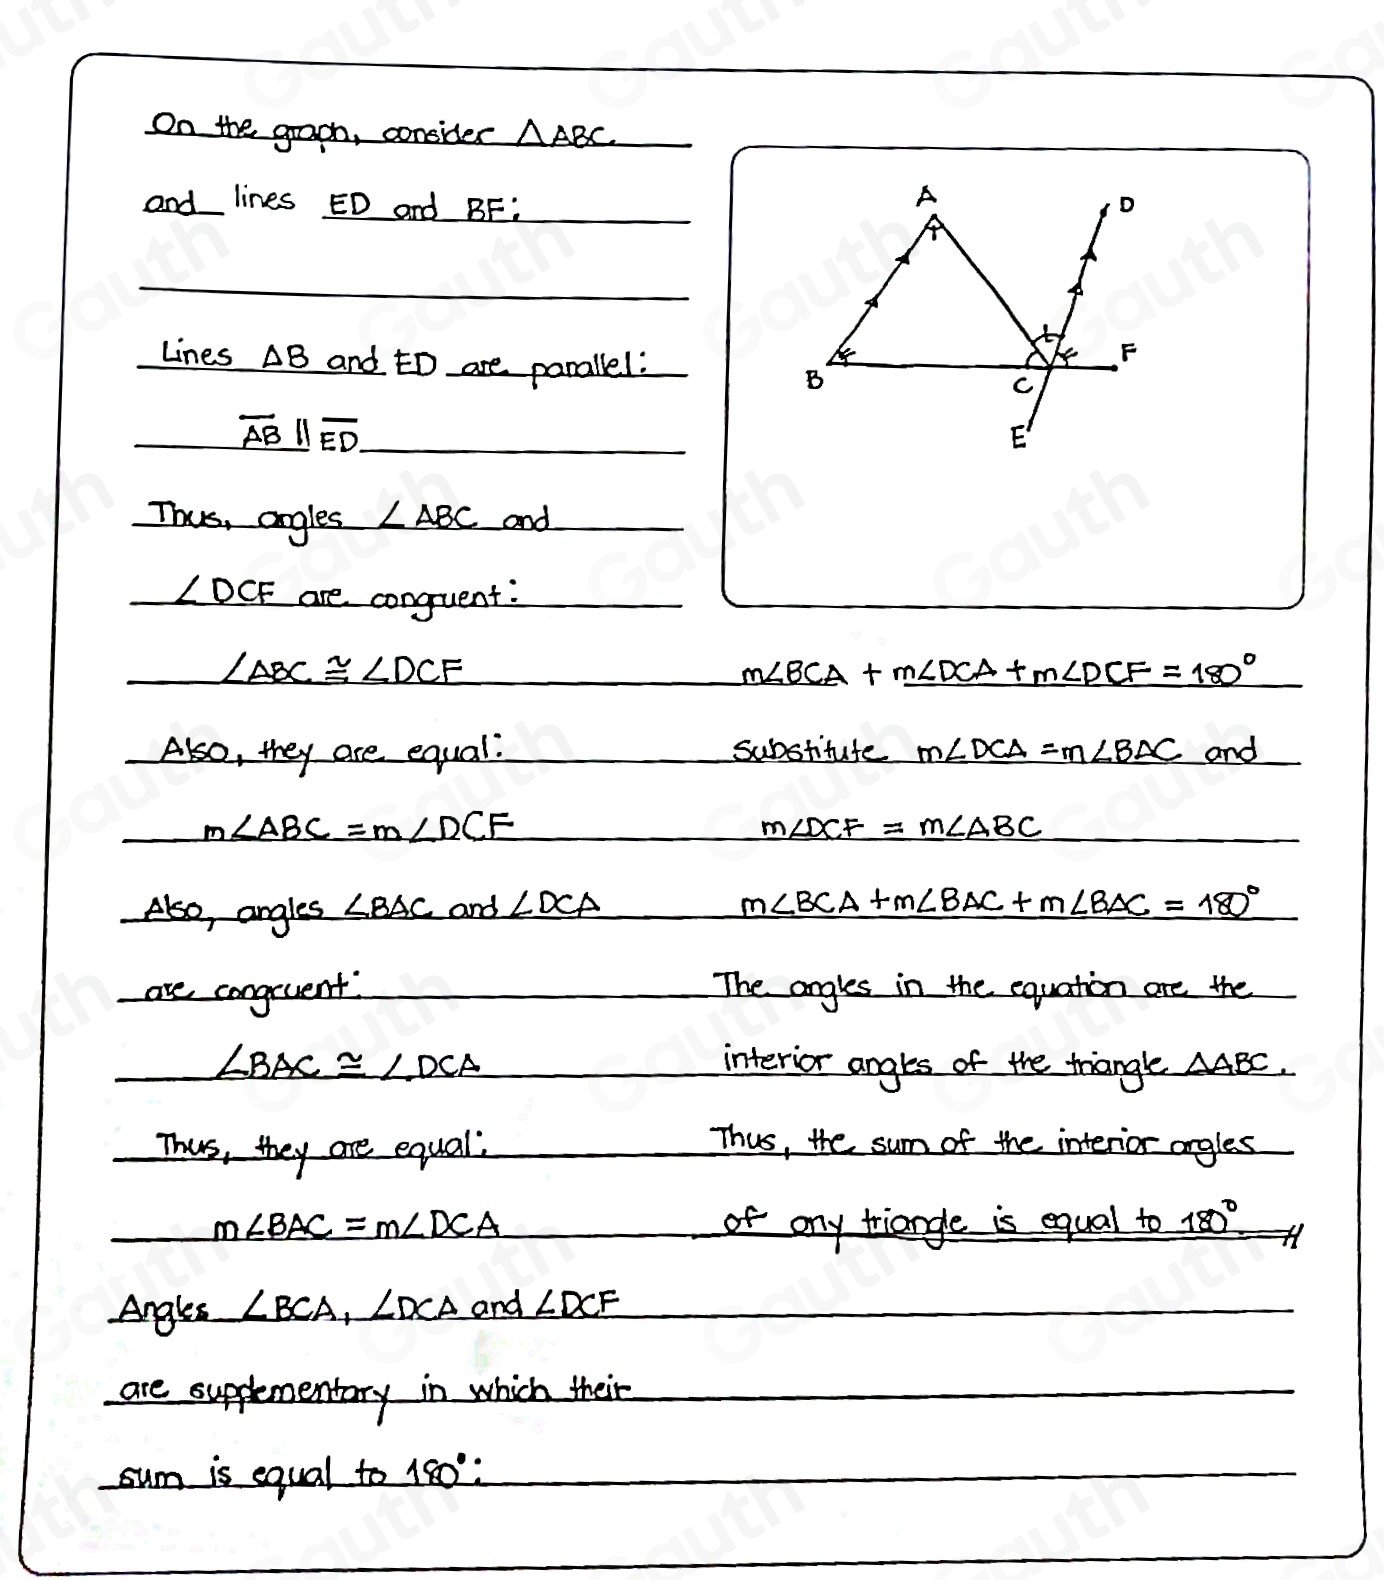 On the graph, consider △ABC
and lines ED and BF:
Lines AB and ED are parallel:
AB || ED
Thus, angles ∠ABC and
∠DCF are congruent:
∠ABC ≅ ∠DCF
Also, they are equal:
m∠ABC = m∠DCF
Also, angles ∠BAC and ∠DCA
are congruent:
∠BAC ≅ ∠DCA
Thus, they are equal:
m∠BAC = m∠DCA
Angles ∠BCA, ∠DCA and ∠DCF
are supplementary in which their
sum is equal to 180°:
A
D
B
C
F
E
m∠BCA + m∠DCA + m∠DCF = 180°
substitute m∠DCA = m∠BAC and
m∠DCF = m∠ABC
m∠BCA + m∠BAC + m∠BAC = 180°
The angles in the equation are the
interior angles of the triangle △ABC.
Thus, the sum of the interior angles
of any triangle is equal to 180°.
Gauth